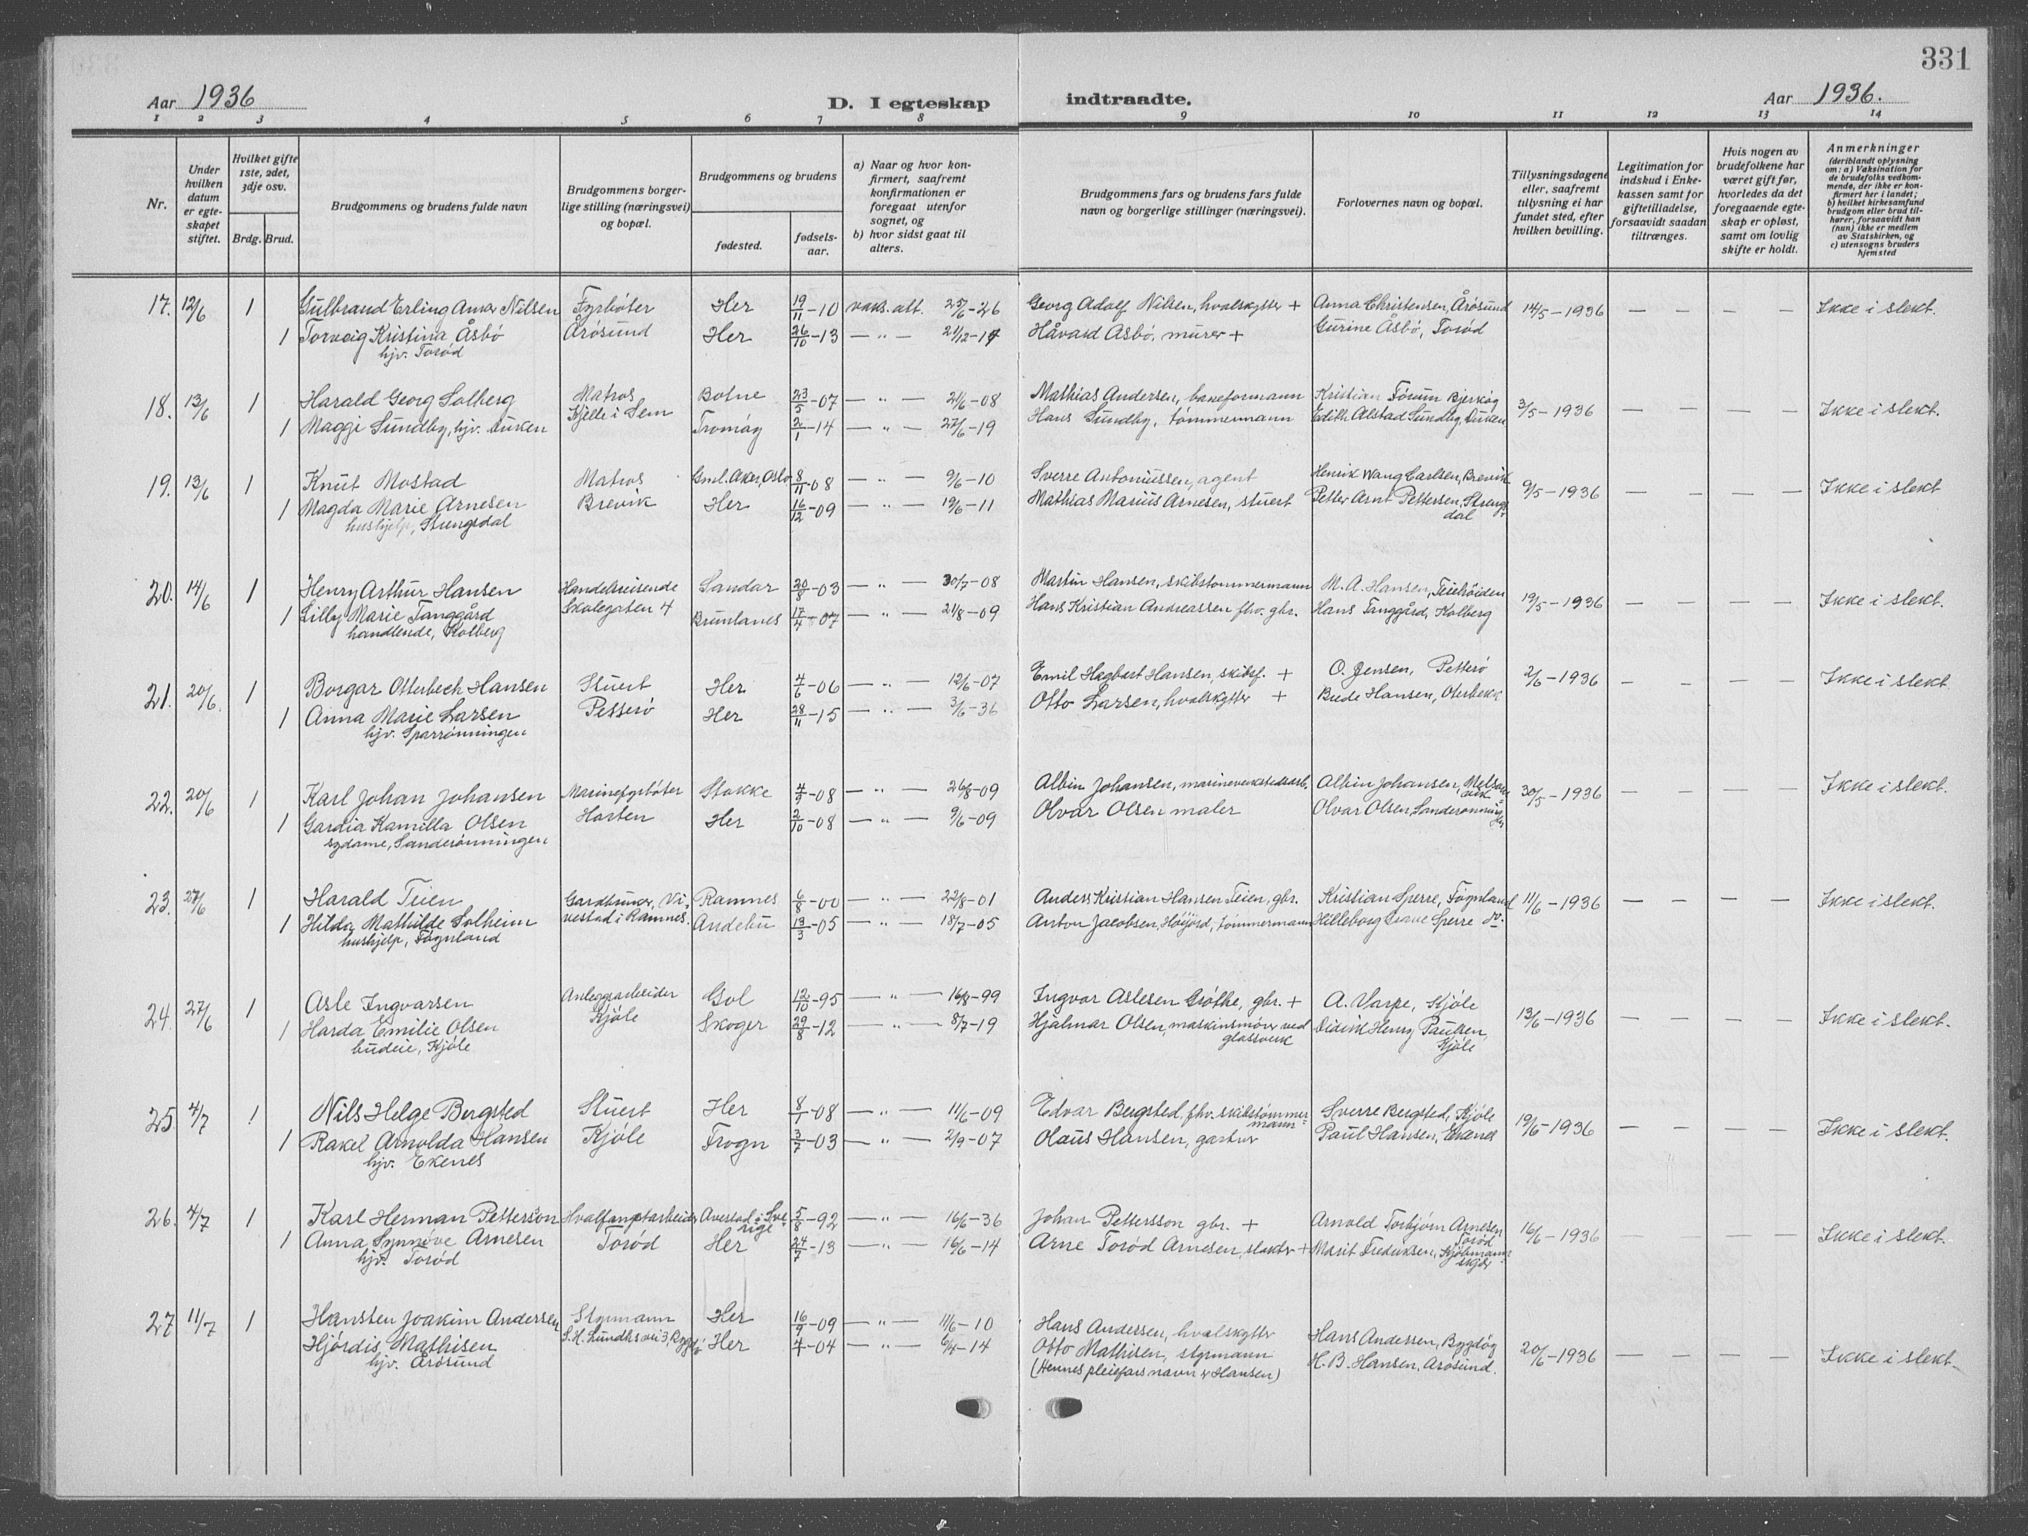 331
Aar 1936
D. I egteskap
indtraadte.
Aar 1936.
1 2 3 4 5 6 7 8 9 10 11 12 13 14
Nr.
Under hvilken datum er egteskapet stiftet.
Hvilket gifte 1ste, 2det, 3dje osv.
Brdg. Brud.
Brudgommens og brudens fulde navn
Brudgommens borgerlige stilling (næringsvei) og bopæl.
Brudgommens og brudens
fødested.
fødselsaar.
a) Naar og hvor konfirmert, saafremt konfirmationen er foregaat utenfor sognet, og
b) hvor sidst gaat til alters.
Brudgommens fars og brudens fars fulde navn og borgerlige stillinger (næringsvei).
Forlovernes navn og bopæl.
Tillysningsdagene eller, saafremt tillysning ei har fundet sted, efter hvilken bevilling.
Legitimation for indskud i Enkekassen samt for giftetilladelse, forsaavidt saadan tiltrænges.
Hvis nogen av brudefolkene har været gift før, hvorledes da det foregaaende egteskap er opløst, samt om lovlig skifte er holdt.
Anmerkninger
(deriblandt oplysning om: a) Vaksination for de brudefolks vedkommende, der ikke er konfirmert her i landet; b) hvilket kirkesamfund brudgom eller brud tilhører, forsaavidt han (hun) ikke er medlem av Statskirken, og c) utensogns bruders hjemsted
17. 12/6 1 Gulbrand Erling Anar Nilsen Fyrbøter Her 19/11-10 vaks. att. 25/6-26 Georg Adolf Nilsen, hvalskytter + Anna Christensen, Årøsund 14/5-1936 — — — — Ikke i slekt.
1 Torveig Kristina Åsbø Årøsund Her 26/10-13 — " — 21/12-14 Håvard Åsbø, murer + Gurine Åsbø, Torød
hjv. Torød
18. 13/6 1 Harald Georg Solberg Matros Botne 23/5-07 — " — 21/6-08 Mathias Andersen, baneformann Kristian Forum Bjerkøy 3/5-1936 — — — — Ikke i slekt.
1 Maggi Sundby, hjv. Duken Kjelle i Sem Tromøy 2/1-14 — " — 27/6-19 Hans Sundby, tømmermann Edith Alstad Sundby, Duken
19. 13/6 1 Knut Mostad Matros Gml. Aker, Oslo 8/11-08 — " — 9/6-10 Sverre Antoniussen, agent Henrik Wang Carlsen, Brevik 9/5-1936 — — — — Ikke i slekt
1 Magda Marie Arnesen Brevik Her 16/12-09 — " — 19/6-11 Mathias Marius Arnesen, stuert Petter Arnt Pettersen, Strengs-
hushjelp, Stengsdal dal
20. 14/6 1 Henry Arthur Hansen Handelsreisende Sandar 20/8-03 — " — 30/7-08 Martin Hansen, skibstømmermann M. A. Hansen, Teiehøiden 19/5-1936 — — — — Ikke i slekt.
1 Lilly Marie Tanggård Skolegaten 4 Brunlanes 17/4-07 — " — 21/8-09 Hans Kristian Andreassen fhv. gbr. Hans Tanggård, Kolberg
handlende, Kolberg
21. 20/6 1 Borgar Otterbech Hansen Stuert Her 4/6-06 — " — 12/6-07 Emil Hagbart Hansen, skibsf. + O. Jensen, Petterø 2/6-1936 — — — — Ikke i slekt
1 Anna Marie Larsen Petterø Her 28/11-15 — " — 3/6-36 Otto Larsen, hvalskytter + Bude Hansen, Oterbekk
hjv. Sparrønningen
22. 20/6 1 Karl Johan Johansen Marinefyrbøter Stokke 4/9-08 — " — 26/8-09 Albin Johansen, marineverkstedsarb. Albin Johansen, Melsomvik 30/5-1936 — — — — Ikke i slekt.
1 Gardia Kamilla Olsen Horten Her 2/10-08 — " — 9/6-09 Olvar Olsen maler Olvar Olsen, Sanderønningen
sydame, Sanderønningen
23. 27/6 1 Harald Teien Gardbruker, Vi- Ramnes 6/8-00 — " — 22/8-01 Anders Kristian Hansen Teien, gbr. Kristian Sperre, Føynland 11/6-1936 — — — — Ikke i slekt.
1 Hilda Mathilde Solheim vestad i Ramnes. Andebu 13/3-05 — " — 18/7-05 Anton Jacobsen, Høijord, tømmermann Hilleborg Sperre do.
hushjelp, Føynland
24. 27/6 1 Asle Ingvarsen Anleggsarbeider Gol 12/10-95 — " — 16/8-99 Ingvar Aslesen Grøthe, gbr. + A. Varpe, Kjøle 13/6-1936 — — — — Ikke i slekt.
1 Harda Emilie Olsen Kjøle Skoger 29/8-12 — " — 8/7-19 Hjalmar Olsen, maskinsmører ved Didrik Henry Paulsen,
budeie, Kjøle glassverk Kjøle
25. 4/7 1 Nils Helge Bergsted Stuert Her 8/1-08 — " — 11/6-09 Edvar Bergsted, fhv. skibstømmermann Sverre Bergsted, Kjøle 19/6-1936 — — — — Ikke i slekt.
1 Rakel Arnolda Hansen Kjøle Frogn 3/7-03 — " — 2/9-07 Olaus Hansen, gartner Paul Hansen,
hjv. Ekenes
26. 4/7 1 Karl Herman Petterson Hvalfangstarbeider Avestad i Sverige 5/8-92 — " — 16/6-36 Johan Pettersson gbr. + Arnold Torbjørn Arnesen 16/6-1936 — — — — Ikke i slekt.
1 Anna Synnøve Arnesen Torød Her 24/9-13 — " — 16/6-14 Arne Torød Arnesen, slakter + Torød Marit Fredriksen, Kjøbmannskjær
hjv. Torød
27 11/7 1 Hansten Joakim Andersen Styrmann Her 16/9-09 — " — 11/6-10 Hans Andersen, hvalskytter Hans Andersen, Bygdøy 20/6-1936 — — — — Ikke i slekt.
1 Hjørdis Mathisen S. H. Lundhs vei 3, Bygdø Her 4/4-04 — " — 6/4-14 Otto Mathisen, styrmann H. B. Hansen, Årøsund.
hjv. Årøsund (Hennes pleiefars navn er Hansen)